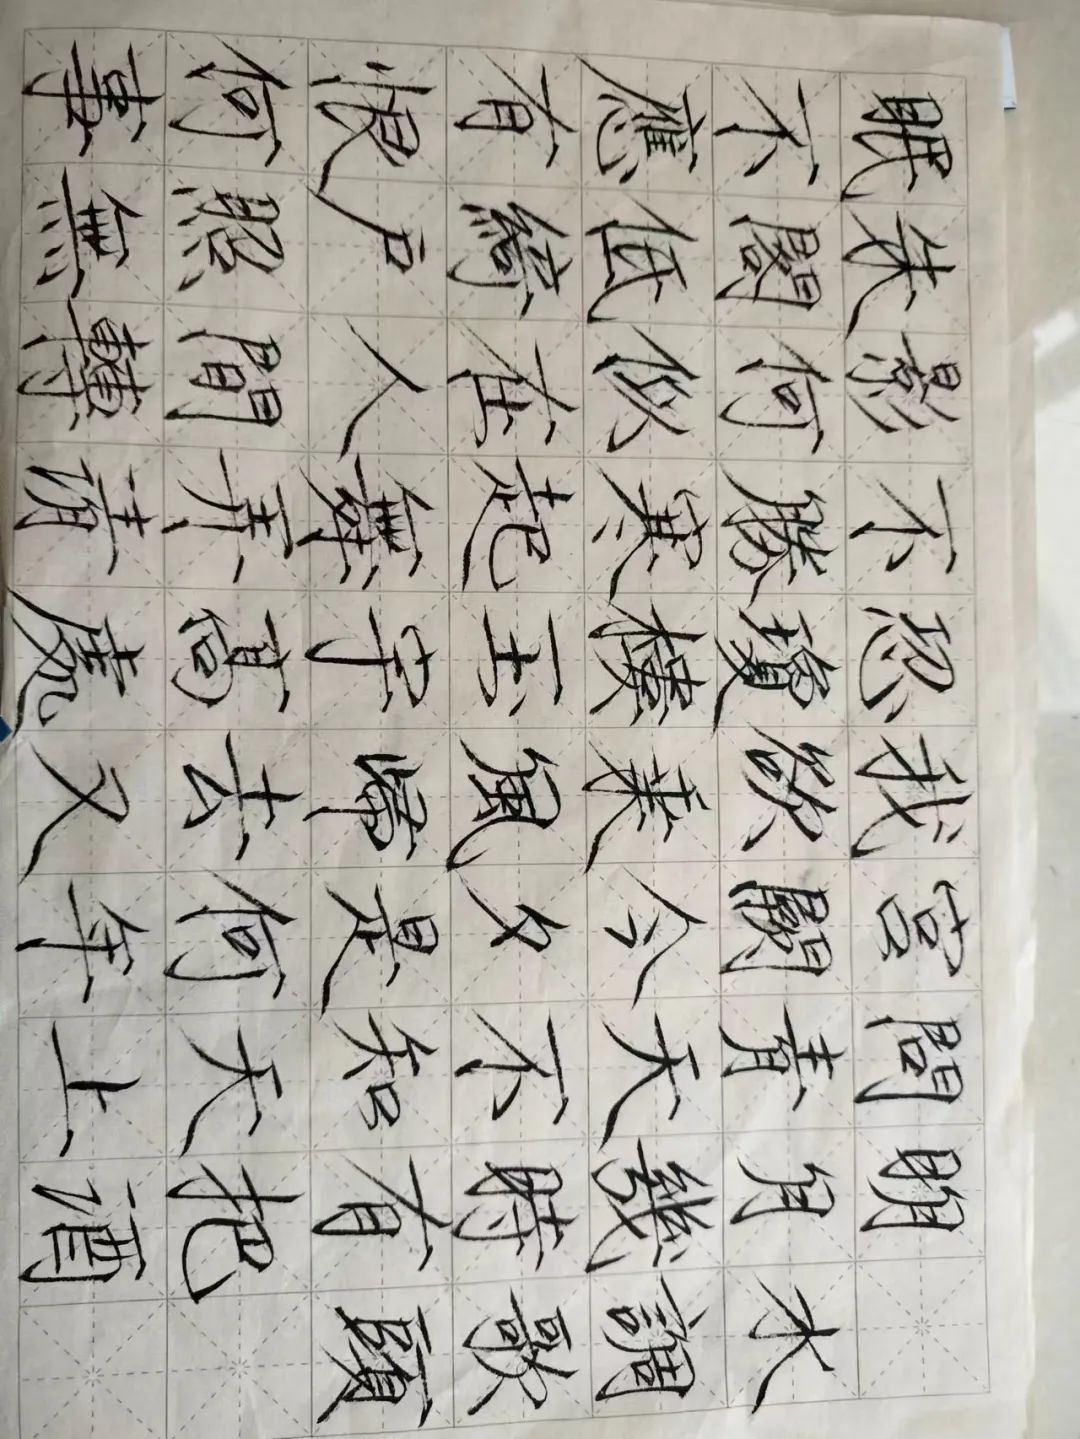 水調歌頭
明月幾時有把酒
問青天不知天上
宮闕今夕是何年
我欲乘風歸去又
恐瓊樓玉宇高處
不勝寒起舞弄清
影何似在人間轉
朱閣低綺户照無
眠不應有恨何事